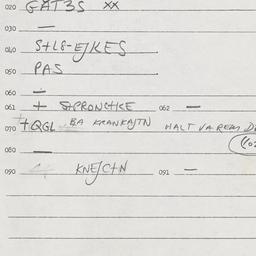 020 GAT3S xx
030 —
040 S+LG-EJKES
050 PAS
060 —
061 + 062 —
070 +QGL BA KRANKAJTN HALT VA
080 —
090 KNEJC+N 091 —